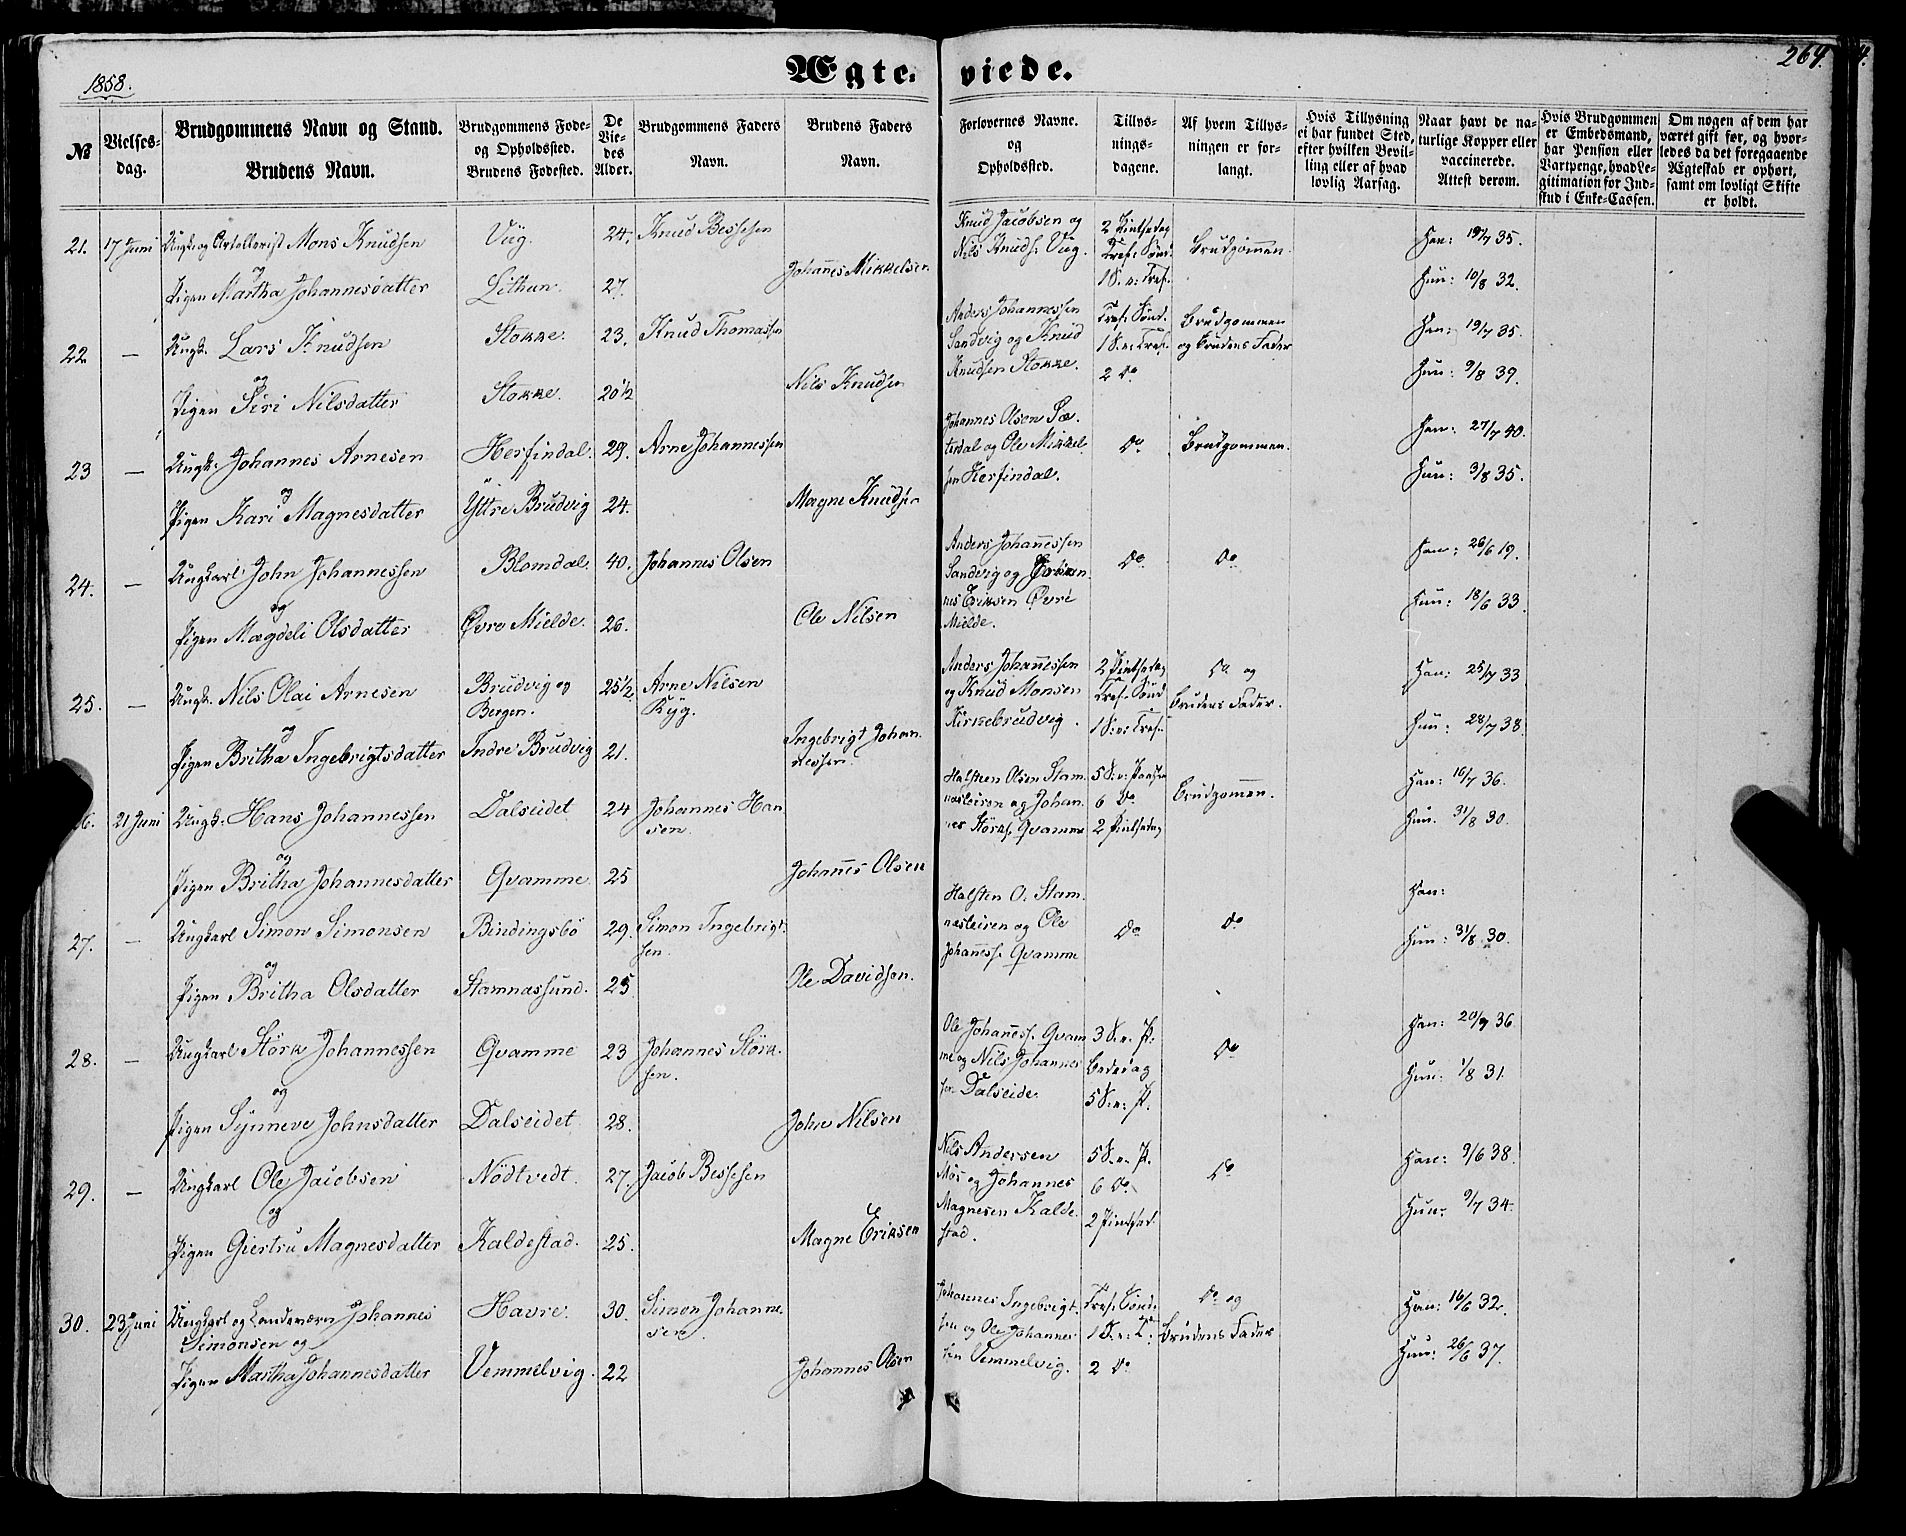 1858.
Ægteviede.
264.
№
Vielsesdag.
Brudgommens Navn og Stand.
Brudens Navn.
Brudgommens Fode- og Opholdssted.
Brudens Fodested.
De Viedes Alder.
Brudgommens Faders Navn.
Brudens Faders Navn.
Forlovernes Navne. og Opholdssted.
Tillysningsdagene.
Af hvem Tillysningen er forlangt.
Hvis Tillysning ei har fundet Sted, efter hvilken Bevilling eller af hvad lovlig Aarsag.
Naar havt de naturlige Kopper eller vaccinerede. Attest derom.
Hvis Brudgommen er Embedsmand, har Pension eller Vartpenge, hvad Legitimation for Indskud i Enke-Cassen.
Om nogen af dem har været gift før, og hvorledes da det foregaaende Ægteskab er ophørt, samt om lovligt Skifte er holdt.
21. 17 Juni Ungk. og Artillerist Mons Knudsen Vüg. 24. Knud Bessesen
og
Pigen Martha Johannesdatter Lithun. 27. Johanes Mikkelsen
Knud Jacobsen og Nils Knuds. Vüg. 2 Pintsedag Tref. Sønd. 1 S. e: Tref. Brudgommen. Han: 19/7 35. Hun: 10/8 32.
22. — Ungk. Lars Knudsen Stokke. 23. Knud Thomassen
og
Pigen Siri Nilsdatter Stokke. 20½ Nils Knudsen
Anders Johannessen Sandvig og Knud Knudsen Stokke. Tref. Sønd. 1 S. e: Tref. 2 Do Brudgommen og Brudens Fader Han: 19/7 35. Hun: 9/8 39.
23 — Ungk. Johannes Arnesen Herfindal. 29. Arne Johannessen
og
Pigen Kari Magnesdatter Yttre Brudvig 24. Magne Knudsen
Johannes Olsen Sæterdal og Ole Mikkelsen Herfindal. Do Brudgommen. Han: 27/7 40. Hun: 3/8 35.
24. — Ungkarl John Johannessen Blomdal. 40. Johannes Olsen
og
Pigen Magdeli Olsdatter Øvre Mielde. 26. Ole Nilsen
Anders Johannessen Sandvig og Johannes Eriksen Øvre Mielde. Do Do Han: 26/6 19. Hun: 18/6 33.
25. — Ungk. Nils Olai Arnesen Brudvig og Bergen. 25½ Arne Nilsen Ryg.
og
Pigen Britha Ingebrigtsdatter Indre Brudvig 21. Ingebrigt Johannessen.
Anders Johannessen og Knud Monsen Kirkebrudvig. 2 Pintsedag Tref. Sønd 1 S. e: Tref. Do og Brudens Fader. Han: 25/7 33 Hun: 28/7 38.
6. 21 Juni Ungk. Hans Johannessen Dalseidet 24 Johannes Hansen.
og
Pigen Britha Johannesdatter Qvamme. 25 Johanes Olsen
Halsten Olsen Stamnæsleiren og Johannes Störks. Qvamme 5 S. e: Paaske 6 Do 2 Pintsedag Brudgommen. Han: 16/7 36. Hun. 31/8 30.
27. — Ungkarl Simon Simonsen Bindingsbö 29. Simon Ingebrigtsen.
og
Pigen Britha Olsdatter Stamnæssund. 25 Ole Davidsen.
Halsten O. Stamnæsleiren og Ole Johaness. Qvamme Do Do Han: Hun: 31/8 30.
28. — Ungkarl Störk Johannessen Qvamme 23 Johannes Störksen.
og
Pigen Synneve Johnsdatter Dalseidet 28. John Nilsen
Ole Johaness. Qvamme og Nils Johannessen Dalseide. 3 S. e. P. Bededag 5 S. e. P. Do Han: 20/7 36 Hun: 1/8 31.
29. — Ungkarl Ole Jacobsen Nödtvedt. 27. Jacob Bessesen
og
Pigen Giertru Magnesdatter Kaldestad. 25. Magne Eriksen
Nils Andersen Mös og Johannes Magnesen Kaldestad. 5 S. e. P. 6 Do. 2 Pintsed. Do Han: 9/6 38. Hun: 9/7 34.
30. 23 Juni Ungkarl og Landeværn Johannes Simonsen og Havre. 30. Simon Johannesen.
Pigen Martha Johannesdatter Vemmelvig. 22 Johannes Olsen
Johannes Ingebrigtsen og Ole Johannessen Vemmelvig. Tref. Sønd. 1 S. e: T. 2 Do Do og Brudens Fader Han: 16/6 32. Hun: 26/6 37.